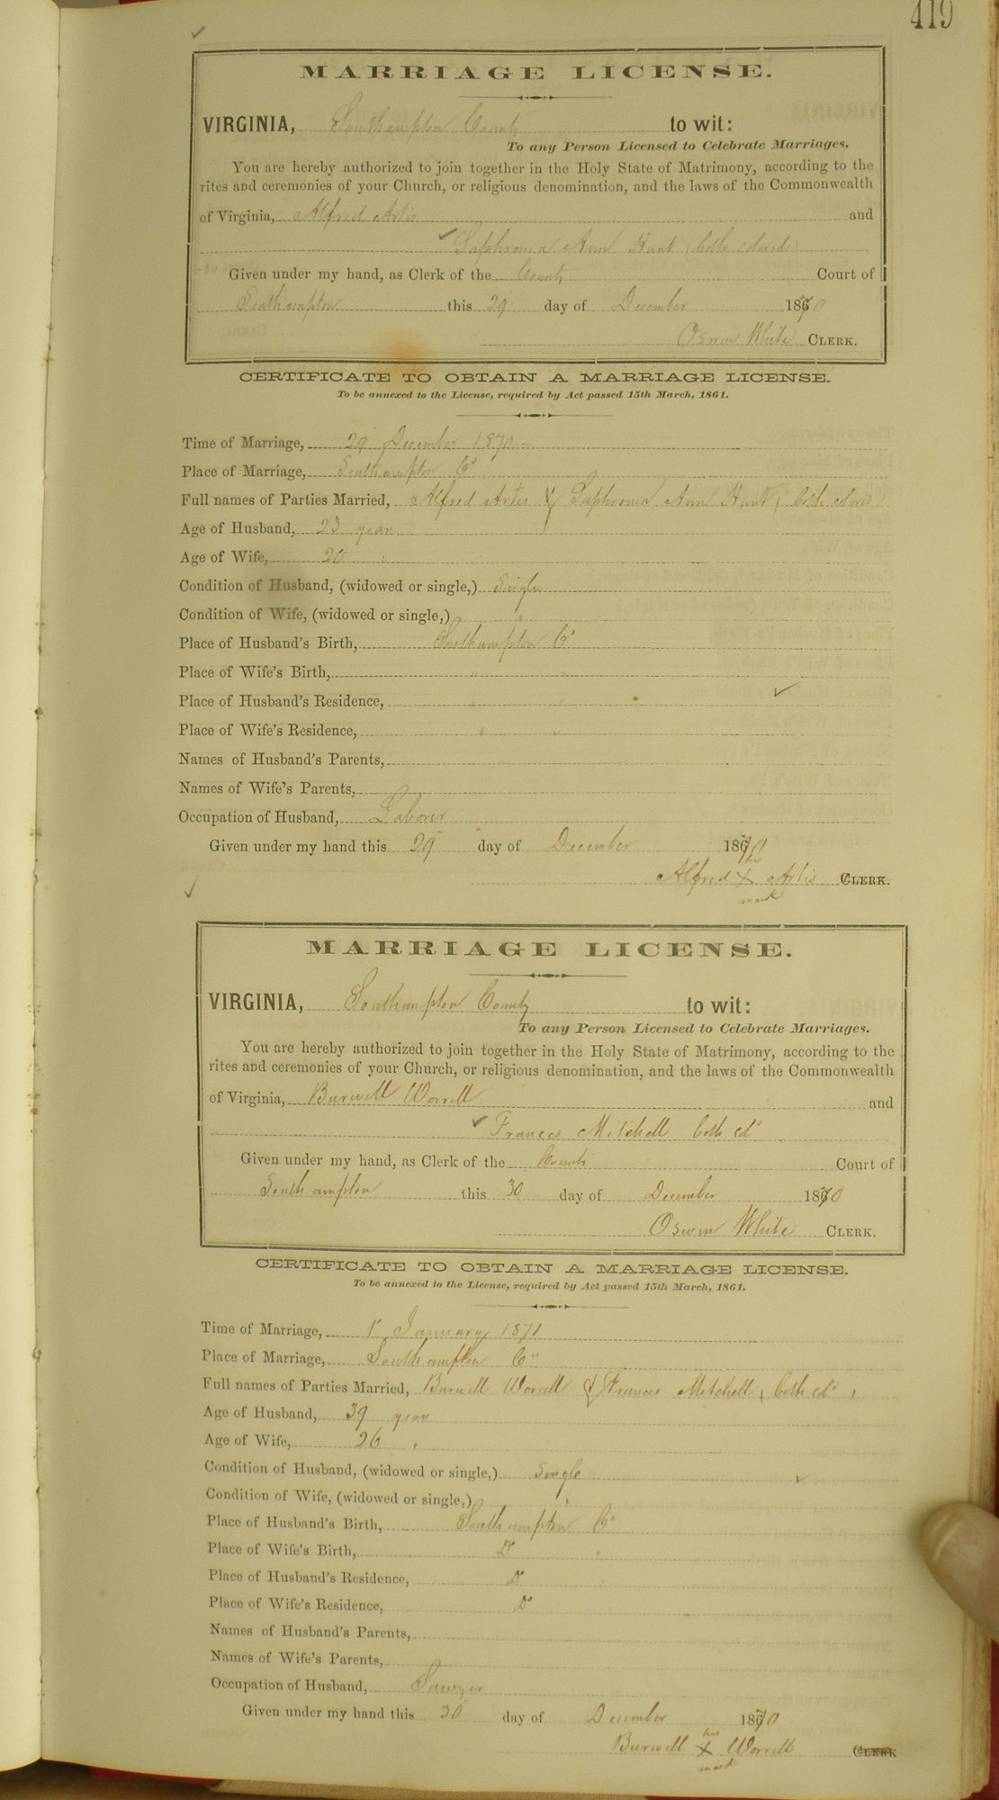 419
MARRIAGE LICENSE.
VIRGINIA, Southampton County to wit:
To any Person Licensed to Celebrate Marriages.
You are hereby authorized to join together in the Holy State of Matrimony, according to the
rites and ceremonies of your Church, or religious denomination, and the laws of the Commonwealth
of Virginia, Alfred Artis and
Saphronia Ann Hunt (both colored)
Given under my hand, as Clerk of the County Court of
Southampton this 29 day of December 1870
Oswin White CLERK.
CERTIFICATE TO OBTAIN A MARRIAGE LICENSE.
To be annexed to the License, required by Act passed 15th March, 1861.
Time of Marriage, 29 December 1870
Place of Marriage, Southampton Co
Full names of Parties Married, Alfred Artis & Saphronia Ann Hunt (both
Age of Husband, 23 years
Age of Wife, 20 "
Condition of Husband, (widowed or single,) Single
Condition of Wife, (widowed or single,) "
Place of Husband's Birth, Southampton Co
Place of Wife's Birth, " "
Place of Husband's Residence, " "
Place of Wife's Residence, " "
Names of Husband's Parents,
Names of Wife's Parents,
Occupation of Husband, Laborer
Given under my hand this 29 day of December 1870
his
Alfred X Artis CLERK.
mark
MARRIAGE LICENSE.
VIRGINIA, Southampton County to wit:
To any Person Licensed to Celebrate Marriages.
You are hereby authorized to join together in the Holy State of Matrimony, according to the
rites and ceremonies of your Church, or religious denomination, and the laws of the Commonwealth
of Virginia, Burwell Worrell and
Frances Mitchell both cd
Given under my hand, as Clerk of the County Court of
Southampton this 30 day of December 1870
Oswin White CLERK.
CERTIFICATE TO OBTAIN A MARRIAGE LICENSE.
To be annexed to the License, required by Act passed 15th March, 1861.
Time of Marriage, 1st January 1871
Place of Marriage, Southampton Co
Full names of Parties Married, Burwell Worrell & Frances Mitchell, both cd
Age of Husband, 39 years
Age of Wife, 26 "
Condition of Husband, (widowed or single,) Single
Condition of Wife, (widowed or single,) "
Place of Husband's Birth, Southampton Co
Place of Wife's Birth, Do
Place of Husband's Residence, Do
Place of Wife's Residence, Do
Names of Husband's Parents,
Names of Wife's Parents,
Occupation of Husband, Sawyer
Given under my hand this 30 day of December 1870
his
Burwell X Worrell CLERK
mark